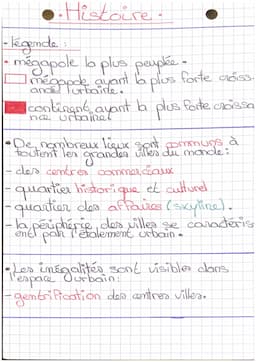 • Histoire •
- Légende :
• mégapole la plus peuplée •
mégapole ayant la plus forte croiss-
ance urbaine.
continent ayant la plus forte croissa
nce urbaine
• De nombreux lieux sont communs à
toutent les grandes villes du monde :
- des centres commerciaux
- quartier historique et culturel
- quartier des affaires (skyline).
- la périphérie, des villes se caractéris-
ent par l'étalement urbain •
• Les inégalités sont visibles dans
l'espace urbain :
- gentrification des centres villes.